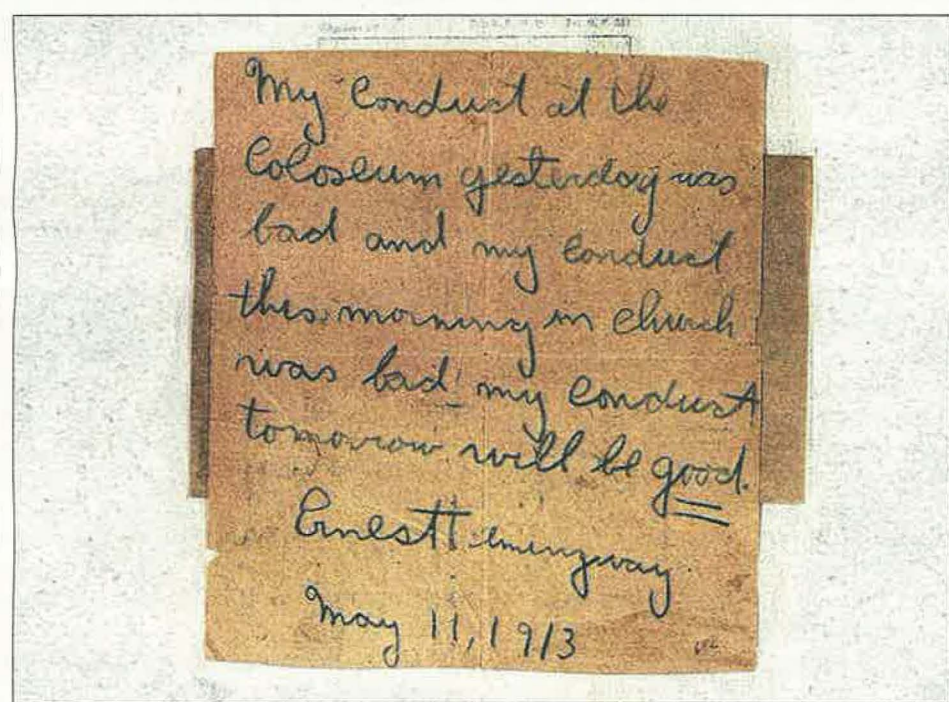 My Conduct at the
Coloseum yesterday was
bad and my Conduct
this morning in Church
was bad my Conduct
tomorrow will be good.
Ernest Hemingway
May 11, 1913